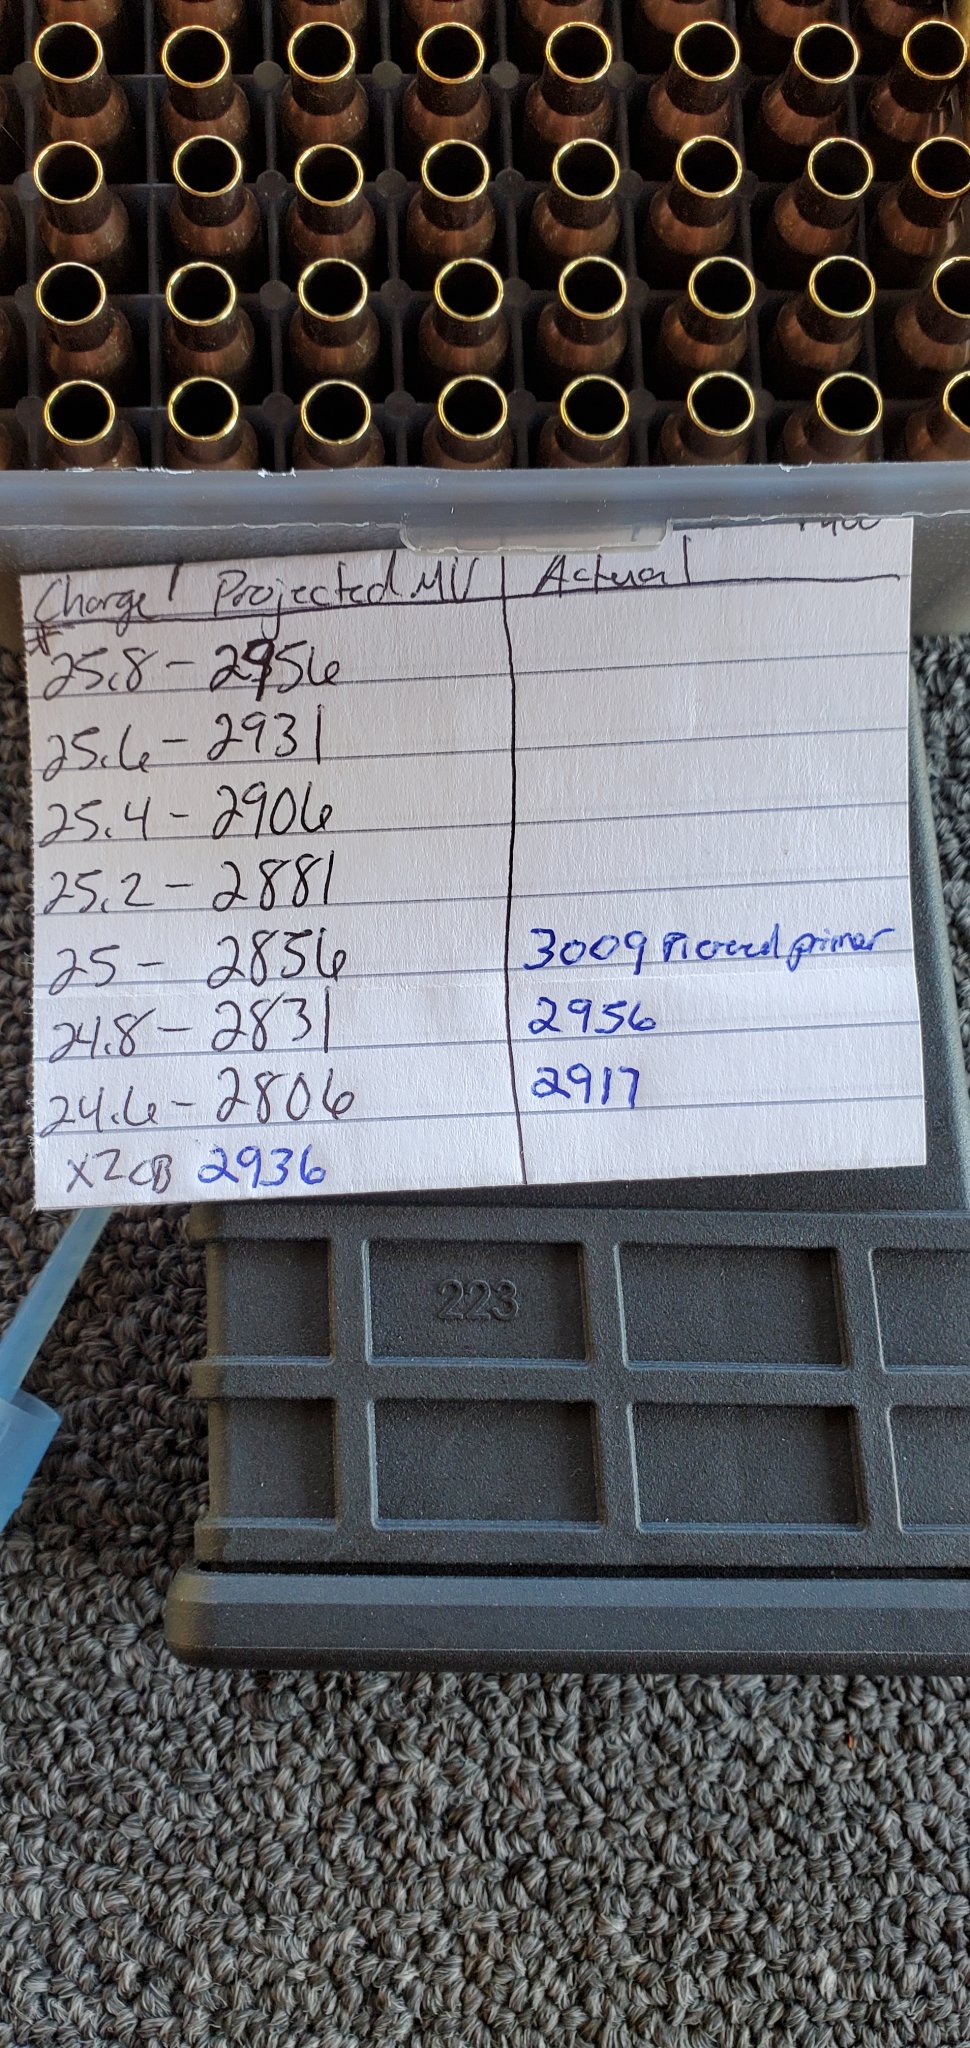 Charge | Projected MV | Actual
* 25.8 - 2956
25.6 - 2931
25.4 - 2906
25.2 - 2881
25 - 2856 3009 Pierced primer
24.8 - 2831 2956
24.6 - 2806 2917
2936
223